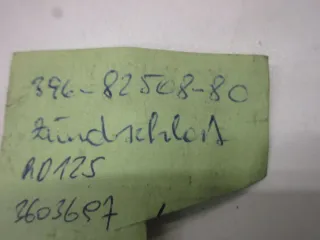 396-82508-80
Zündschloß
RD125
3603697